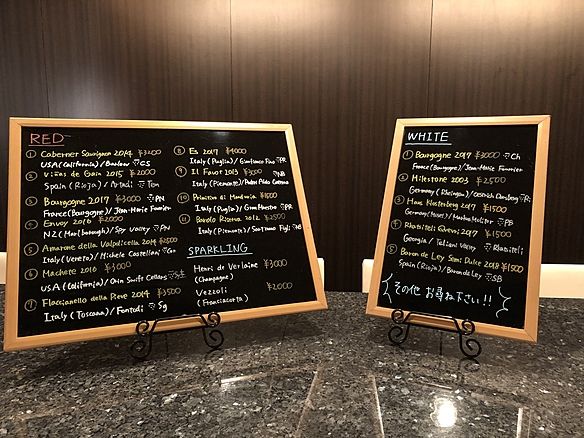 RED
① Cabernet Sauvignon 2014 ¥3200
USA (California) / Banlow CS
② Viñas de Gain 2015 ¥2000
Spain (Rioja) / Artadi Tem
③ Bourgogne 2017 ¥3000 PN
France (Bourgogne) / Jean-Marie Fourrier
④ Envoy 2016 ¥2000
NZ (Marlborough) / Spy Valley PN
⑤ Amarone della Valpolicella 2014 ¥2500
Italy (Veneto) / Michele Castellani
⑥ Machete 2016 ¥3000
USA (California) / Orin Swift Cellars
⑦ Flaccianello della Pieve 2014 ¥3500
Italy (Toscana) / Fontodi Sg
⑧ Es 2017 ¥4000
Italy (Puglia) / Gianfranco Fino PR
⑨ Il Favot 2013 ¥3000 NB
Italy (Piemonte) / Poderi Aldo Conterno
⑩ Primitivo di Manduria ¥1500
Italy (Puglia) / PR
⑪ Barolo Riserva 2012 ¥2500
Italy (Piemonte) / Figli NB
SPARKLING
Henri de Verlaine ¥3000
(Champagne)
Vezzoli ¥2000
(Franciacorta)
WHITE
① Bourgogne 2017 ¥3000 Ch
France (Bourgogne) / Jean-Marie Fourrier
② Milestone 2003 ¥2500
Germany (Rheingau) /
③ Hans Klosterberg 2017 ¥1500
Germany (Mosel) / Markus Molitor PB
④ Rkatsiteli Qvevri 2017 ¥1500
Georgia / Teliani Valley Rkatsiteli
⑤ Baron de Ley Semi Dulce 2018 ¥1500
Spain (Rioja) / Baron de Ley SB
その他 お尋ね下さい!!